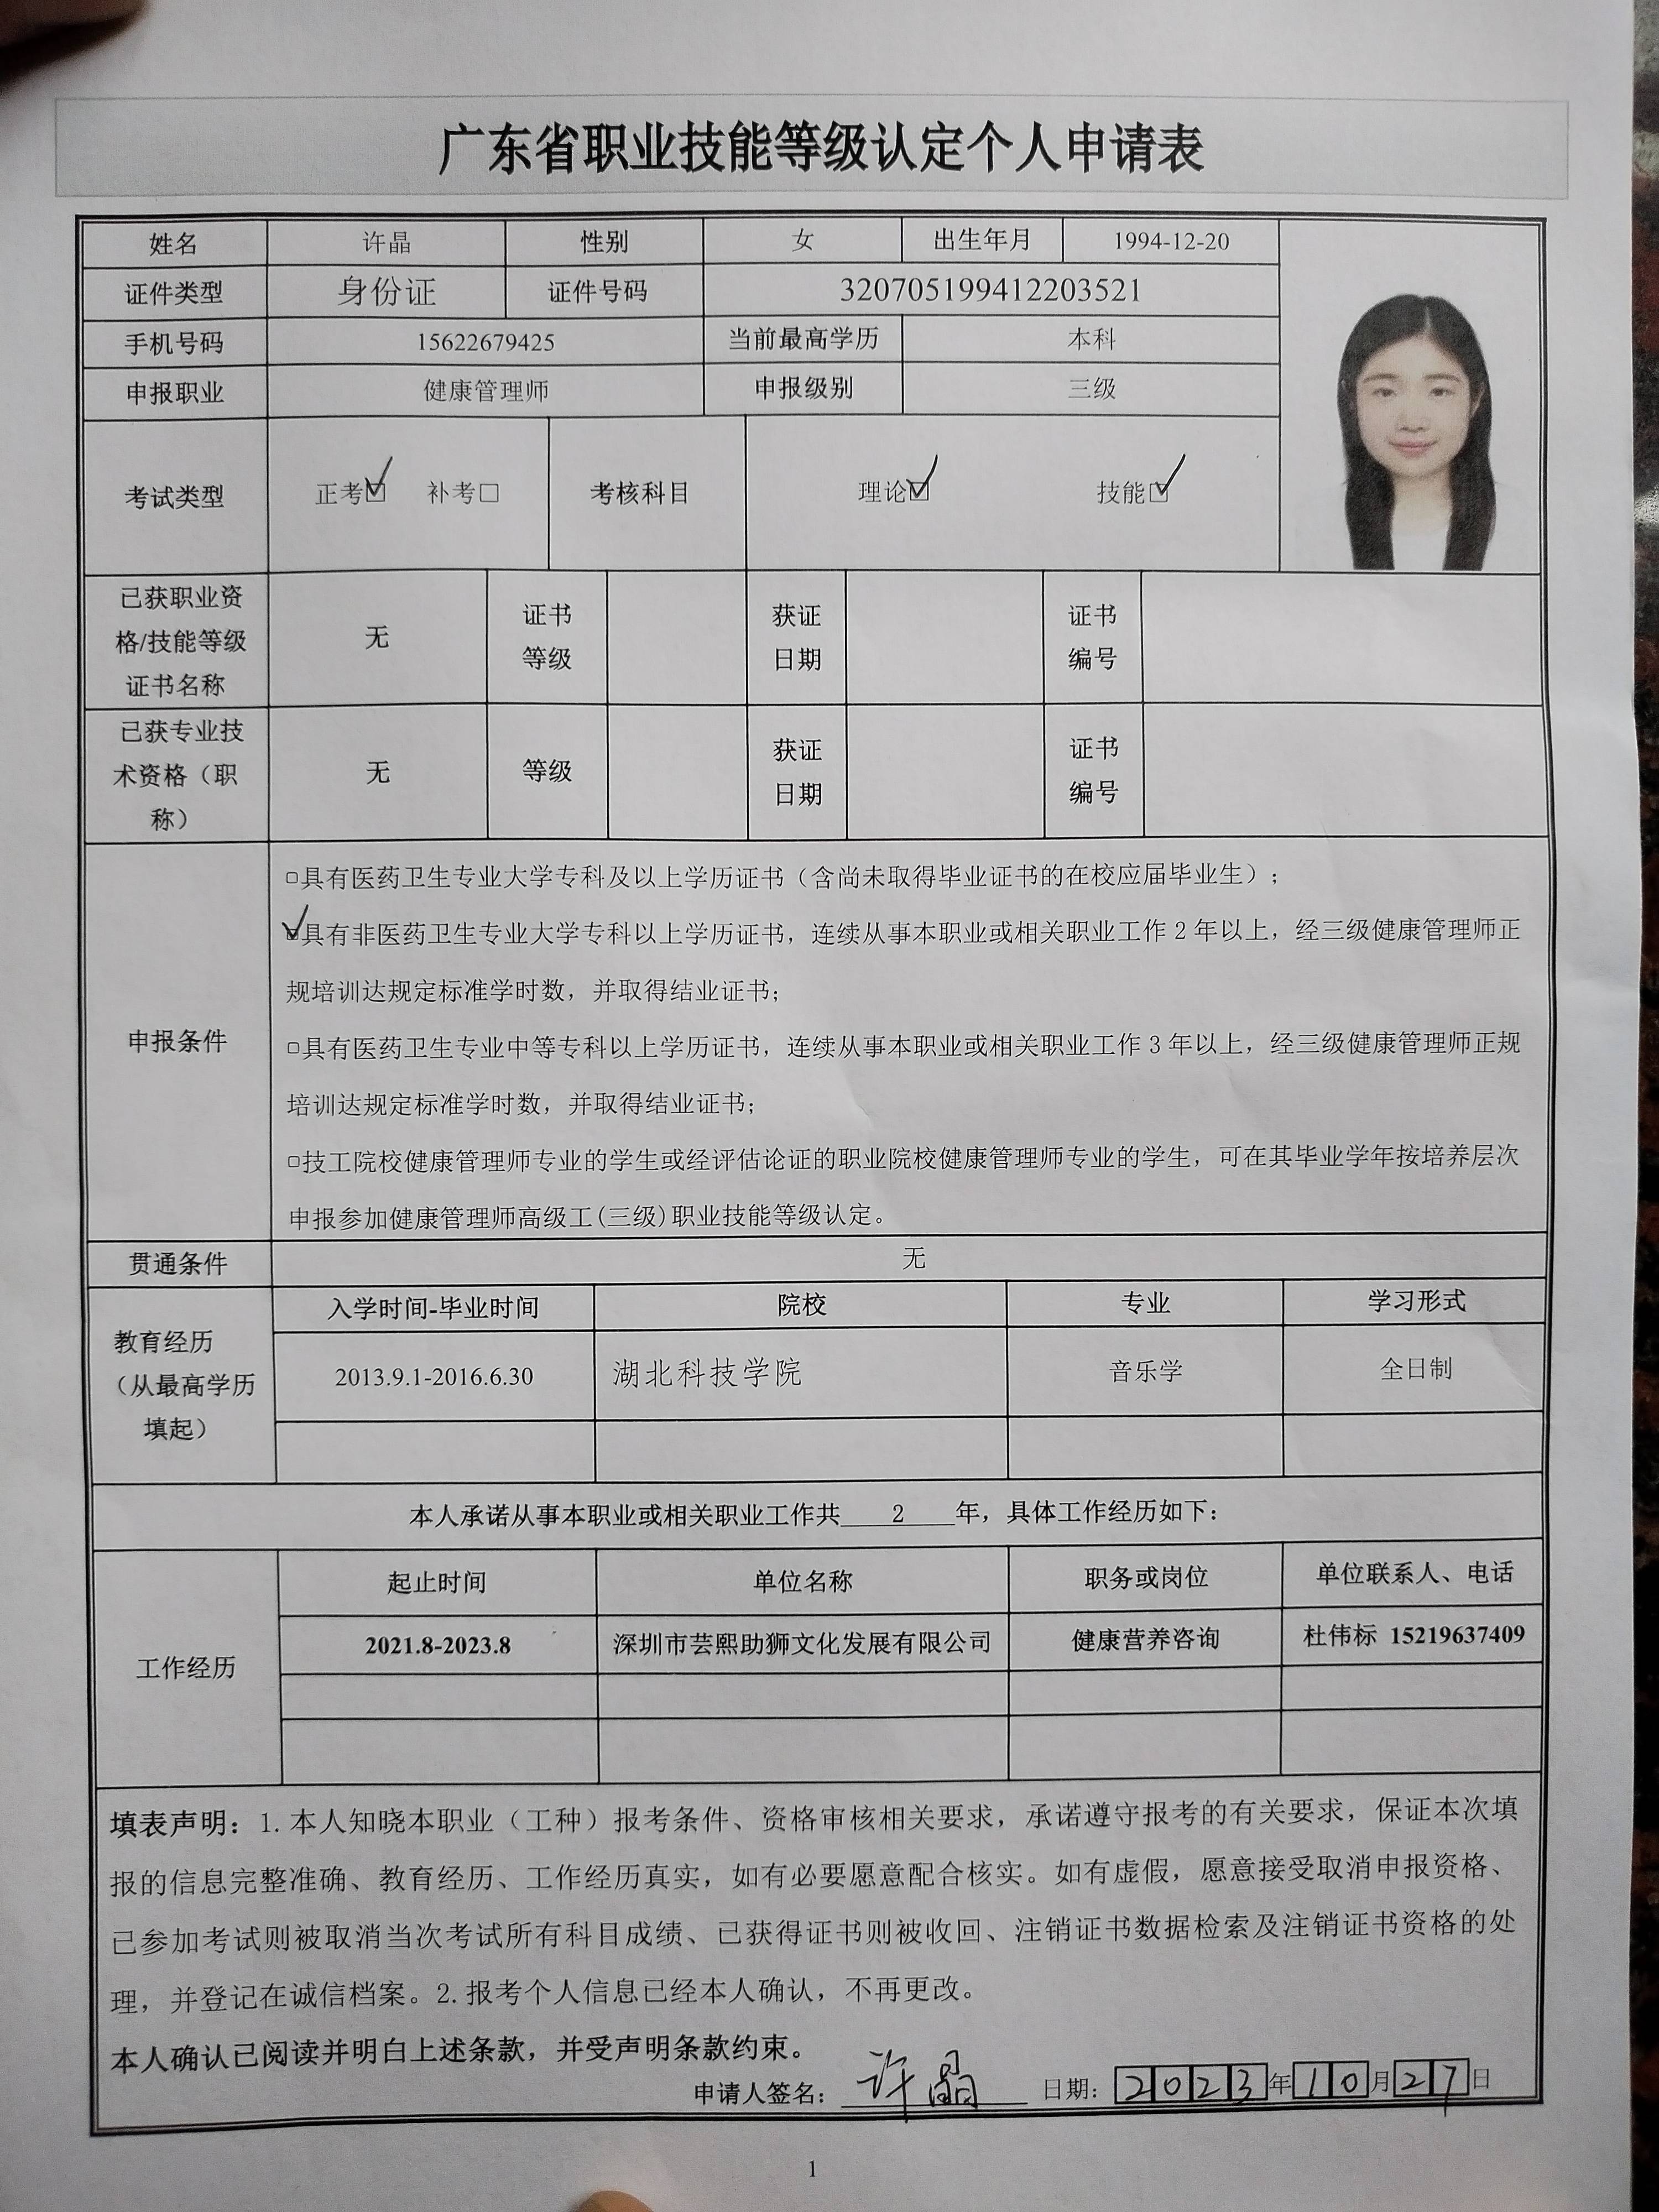 广东省职业技能等级认定个人申请表
姓名 许晶 性别 女 出生年月 1994-12-20
证件类型 身份证 证件号码 320705199412203521
手机号码 15622679425 当前最高学历 本科
申报职业 健康管理师 申报级别 三级
考试类型 正考☑ 补考□ 考核科目 理论☑ 技能☑
已获职业资
格/技能等级
证书名称
无
证书
等级
获证
日期
证书
编号
已获专业技
术资格（职
称）
无
等级
获证
日期
证书
编号
申报条件
□具有医药卫生专业大学专科及以上学历证书（含尚未取得毕业证书的在校应届毕业生）；
☑具有非医药卫生专业大学专科以上学历证书，连续从事本职业或相关职业工作 2 年以上，经三级健康管理师正
规培训达规定标准学时数，并取得结业证书；
□具有医药卫生专业中等专科以上学历证书，连续从事本职业或相关职业工作 3 年以上，经三级健康管理师正规
培训达规定标准学时数，并取得结业证书；
□技工院校健康管理师专业的学生或经评估论证的职业院校健康管理师专业的学生，可在其毕业学年按培养层次
申报参加健康管理师高级工(三级)职业技能等级认定。
贯通条件 无
教育经历
（从最高学历
填起）
入学时间-毕业时间 院校 专业 学习形式
2013.9.1-2016.6.30 湖北科技学院 音乐学 全日制
本人承诺从事本职业或相关职业工作共 2 年，具体工作经历如下：
工作经历
起止时间 单位名称 职务或岗位 单位联系人、电话
2021.8-2023.8 深圳市芸熙助狮文化发展有限公司 健康营养咨询 杜伟标 15219637409
填表声明：1.本人知晓本职业（工种）报考条件、资格审核相关要求，承诺遵守报考的有关要求，保证本次填
报的信息完整准确、教育经历、工作经历真实，如有必要愿意配合核实。如有虚假，愿意接受取消申报资格、
已参加考试则被取消当次考试所有科目成绩、已获得证书则被收回、注销证书数据检索及注销证书资格的处
理，并登记在诚信档案。2.报考个人信息已经本人确认，不再更改。
本人确认已阅读并明白上述条款，并受声明条款约束。
申请人签名：许晶 日期：2023年10月27日
1